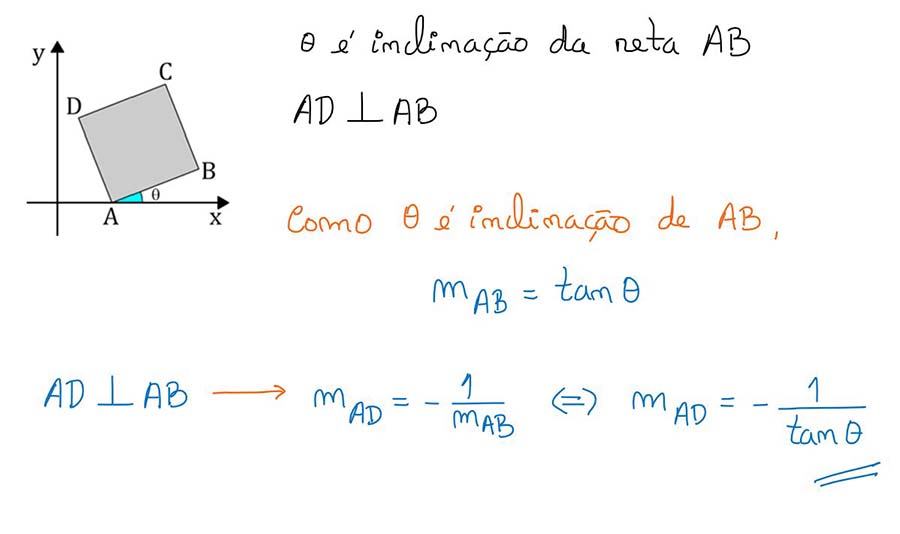 θ é inclinação da reta AB
y
C
D
AD ⊥ AB
B
θ
A
x
Como θ é inclinação de AB,
m_AB = tan θ
AD ⊥ AB → m_AD = - 1/m_AB ⇔ m_AD = - 1/tan θ